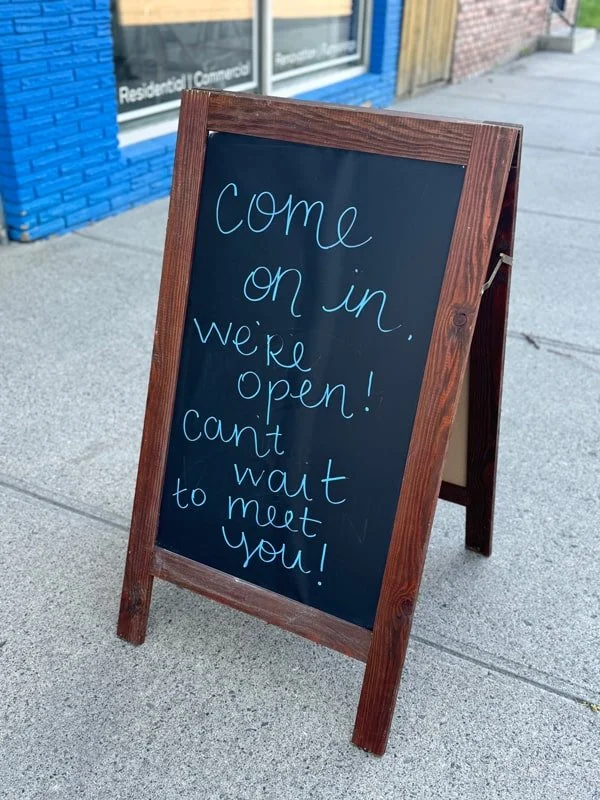 Residential | Commercial
Renovation |
Come
on in.
we're
open!
can't
wait
to meet
you!